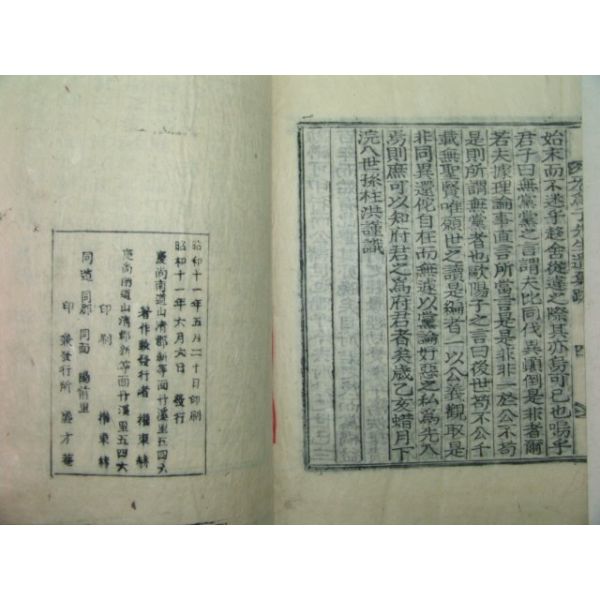 始末而不迷乎趍舍從違之際其亦易可已也嗚乎
君子曰無黨黨之言謂夫比同伐異顚倒是非者爾
若夫據理論事直言所當言是是非非一於公不苟
是則所謂無黨者也歐陽子之言曰後世苟不公千
載無聖賢唯願世之讀是編者一以公義觀取是
非同異還佗自在而無遽以黨論好惡之私爲先入
焉則庶可以知府君之爲府君者矣歲乙亥蜡月下
浣八世孫柱洪謹識
昭和十一年五月二十日印刷
昭和十一年六月六日發行
慶尚南道山淸郡新等面竹溪里五四六
著作兼發行者 權東
印刷 權東
慶尚南道山淸郡新等面竹溪里五四六
同道同郡同面陽前里
印兼發行所